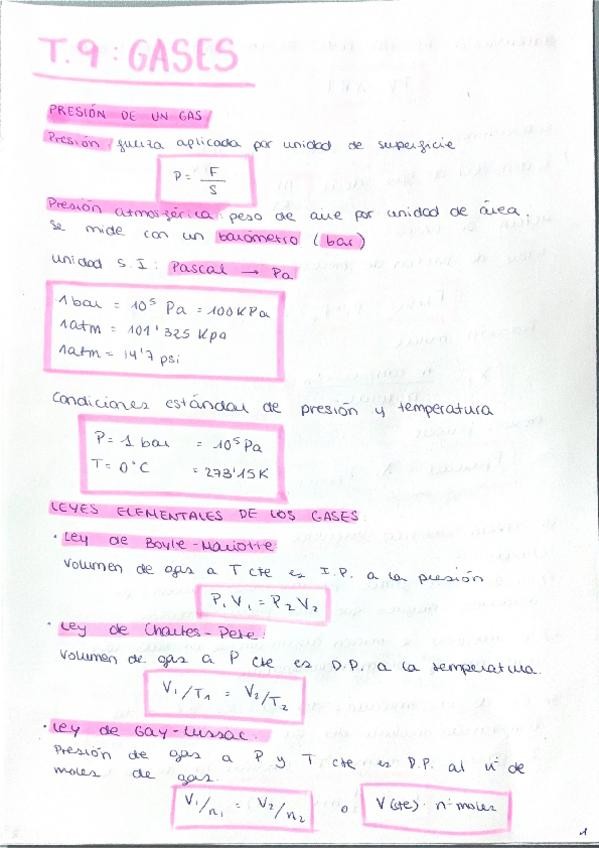 T.9: GASES
PRESIÓN DE UN GAS
Presión: fuerza aplicada por unidad de superficie
P = F / S
Presión atmosférica: peso de aire por unidad de área.
Se mide con un barómetro (bar)
unidad S.I: Pascal → Pa
1 bar = 10⁵ Pa = 100KPa
1atm = 101'325 Kpa
1atm = 14'7 psi
Condiciones estándar de presión y temperatura
P = 1 bar = 10⁵ Pa
T = 0°C = 273'15K
LEYES ELEMENTALES DE LOS GASES
· Ley de Boyle-Mariotte
Volumen de gas a T cte es I.P. a la presión
P₁V₁ = P₂V₂
· Ley de Charles-Pete:
Volumen de gas a P cte es D.P. a la temperatura.
V₁/T₁ = V₂/T₂
· Ley de Gay-Lussac.
Presión de gas a P y T cte es D.P. al nº de
moles de gas.
V₁/n₁ = V₂/n₂ o V(cte)· nº moles
1